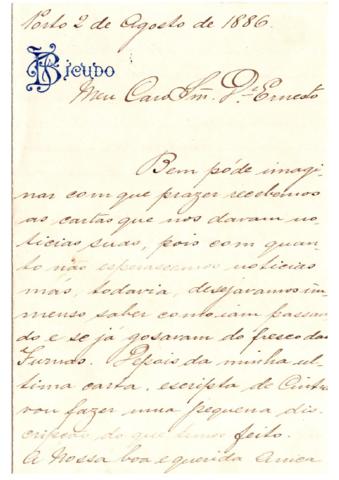 Porto 2 de Agosto de 1886.
BICUDO
Meu Caro Snr. Dr. Ernesto
Bem póde imagi
nar com que prazer recebemos
as cartas que nos davam no
ticias suas, pois com quan
to não esperassemos noticias
más, todavia, desejavamos im
menso saber como iam passan
do e se já gosavam do fresco das
Furnas. Depois da minha ul
tima carta, escripta de Cintra
vou fazer uma pequena dis
cripção do que temos feito.
A Nossa boa e querida Amica